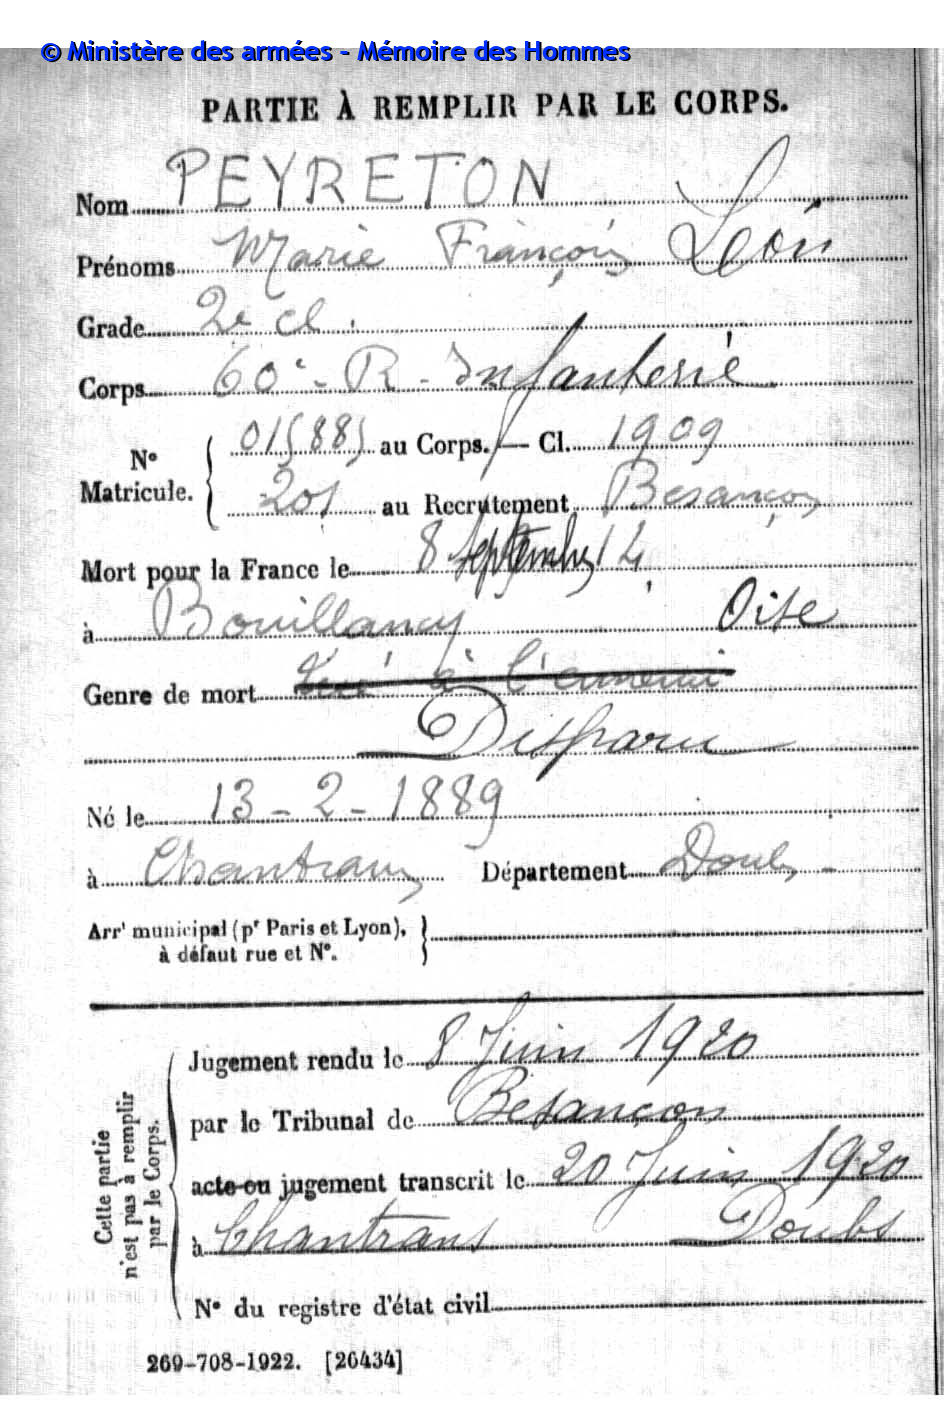 © Ministère des armées - Mémoire des Hommes
PARTIE À REMPLIR PAR LE CORPS.
Nom PEYRETON
Prénoms Marie François Léon
Grade 2e cl.
Corps 60e - R - Infanterie
N° Matricule. { au Corps. — Cl. 1909
201 au Recrutement Besançon
Mort pour la France le 8 Septembre 14
à Bouillancy Oise
Genre de mort Tué à l'ennemi
Disparu
Né le 13 - 2 - 1889
à Chantrans Département Doubs -
Arrt municipal (pr Paris et Lyon), }
à défaut rue et N°.
Cette partie n'est pas à remplir par le Corps.
Jugement rendu le 8 Juin 1920
par le Tribunal de Besançon
acte ou jugement transcrit le 20 Juin 1920
à Chantrans Doubs
N° du registre d'état civil
269-708-1922. [26434]